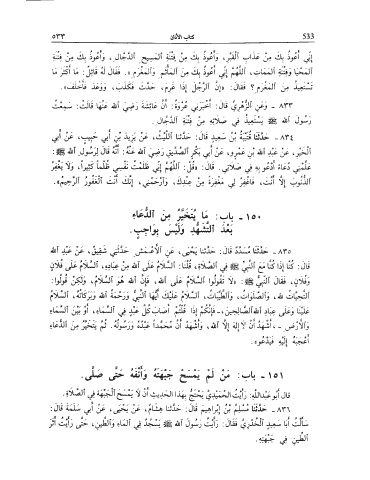 533 كتاب الأذان ٥٣٣
إِنِّي أَعُوذُ بِكَ مِنْ عَذَابِ القَبْرِ، وَأَعُوذُ بِكَ مِنْ فِتْنَةِ المَسِيحِ الدَّجَّالِ، وَأَعُوذُ بِكَ مِنْ فِتْنَةِ
المَحْيَا وَفِتْنَةِ المَمَاتِ، اللَّهُمَّ إِنِّي أَعُوذُ بِكَ مِنَ المَأْثَمِ وَالمَغْرَمِ». فَقَالَ لَهُ قَائِلٌ: مَا أَكْثَرَ مَا
تَسْتَعِيذُ مِنَ المَغْرَمِ؟ فَقَالَ: «إِنَّ الرَّجُلَ إِذَا غَرِمَ، حَدَّثَ فَكَذَبَ، وَوَعَدَ فَأَخْلَفَ».
٨٣٣ - وَعَنِ الزُّهْرِيِّ قَالَ: أَخْبَرَنِي عُرْوَةُ: أَنَّ عَائِشَةَ رَضِيَ الله عَنْهَا قَالَتْ: سَمِعْتُ
رَسُولَ الله ﷺ يَسْتَعِيذُ فِي صَلاَتِهِ مِنْ فِتْنَةِ الدَّجَّالِ.
٨٣٤ - حَدَّثَنَا قُتَيْبَةُ بْنُ سَعِيدٍ قَالَ: حَدَّثَنَا اللَّيْثُ، عَنْ يَزِيدَ بْنِ أَبِي حَبِيبٍ، عَنْ أَبِي
الْخَيْرِ، عَنْ عَبْدِ الله بْنِ عَمْرٍو، عَنْ أَبِي بَكْرٍ الصِّدِّيقِ رَضِيَ الله عَنْهُ: أَنَّهُ قَالَ لِرَسُولِ الله ﷺ:
عَلِّمْنِي دُعَاءً أَدْعُو بِهِ فِي صَلاَتِي. قَالَ: «قُلِ: اللَّهُمَّ إِنِّي ظَلَمْتُ نَفْسِي ظُلْماً كَثِيراً، وَلاَ يَغْفِرُ
الذُّنُوبَ إِلاَّ أَنْتَ، فَاغْفِرْ لِي مَغْفِرَةً مِنْ عِنْدِكَ، وَارْحَمْنِي، إِنَّكَ أَنْتَ الْغَفُورُ الرَّحِيمُ».
١٥٠ - باب: مَا يُتَخَيَّرُ مِنَ الدُّعَاءِ
بَعْدَ التَّشَهُّدِ وَلَيْسَ بِوَاجِبٍ.
٨٣٥ - حَدَّثَنَا مُسَدَّدٌ قَالَ: حَدَّثَنَا يَحْيَى، عَنِ الأَعْمَشِ حَدَّثَنِي شَقِيقٌ، عَنْ عَبْدِ الله
قَالَ: كُنَّا إِذَا كُنَّا مَعَ النَّبِيِّ ﷺ فِي الصَّلاَةِ، قُلْنَا: السَّلاَمُ عَلَى الله مِنْ عِبَادِهِ، السَّلاَمُ عَلَى فُلاَنٍ
وَفُلاَنٍ، فَقَالَ النَّبِيُّ ﷺ: «لاَ تَقُولُوا السَّلاَمُ عَلَى الله، فَإِنَّ الله هُوَ السَّلاَمُ، وَلَكِنْ قُولُوا:
التَّحِيَّاتُ لله، وَالصَّلَوَاتُ، وَالطَّيِّبَاتُ، السَّلاَمُ عَلَيْكَ أَيُّهَا النَّبِيُّ وَرَحْمَةُ الله وَبَرَكَاتُهُ، السَّلاَمُ
عَلَيْنَا وَعَلَى عِبَادِ الله الصَّالِحِينَ، - فَإِنَّكُمْ إِذَا قُلْتُمْ أَصَابَ كُلَّ عَبْدٍ فِي السَّمَاءِ، أَوْ بَيْنَ السَّمَاءِ
وَالأَرْضِ - أَشْهَدُ أَنْ لاَ إِلَهَ إِلاَّ الله، وَأَشْهَدُ أَنَّ مُحَمَّداً عَبْدُهُ وَرَسُولُهُ. ثُمَّ يَتَخَيَّرُ مِنَ الدُّعَاءِ
أَعْجَبَهُ إِلَيْهِ فَيَدْعُو».
١٥١ - باب: مَنْ لَمْ يَمْسَحْ جَبْهَتَهُ وَأَنْفَهُ حَتَّى صَلَّى.
قال أبو عبدالله: رَأَيْتُ الحُمَيْدِيَّ يَحْتَجُّ بِهَذَا الحديثِ أَنْ لاَ يَمْسَحَ الْجَبْهَةَ فِي الصَّلاَةِ.
٨٣٦ - حَدَّثَنَا مُسْلِمُ بْنُ إِبْرَاهِيمَ قَالَ: حَدَّثَنَا هِشَامٌ، عَنْ يَحْيَى، عَنْ أَبِي سَلَمَةَ قَالَ:
سَأَلْتُ أَبَا سَعِيدٍ الْخُدْرِيَّ فَقَالَ: رَأَيْتُ رَسُولَ الله ﷺ يَسْجُدُ فِي المَاءِ وَالطِّينِ، حَتَّى رَأَيْتُ أَثَرَ
الطِّينِ فِي جَبْهَتِهِ.